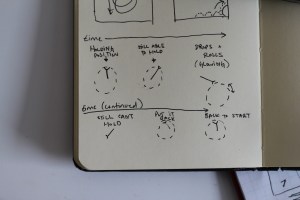 time
HOLDING
POSITION
STILL ABLE
TO HOLD
DROPS +
ROLLS
time (continued)
STILL CAN'T
HOLD
PUT IT
BACK
BACK TO START